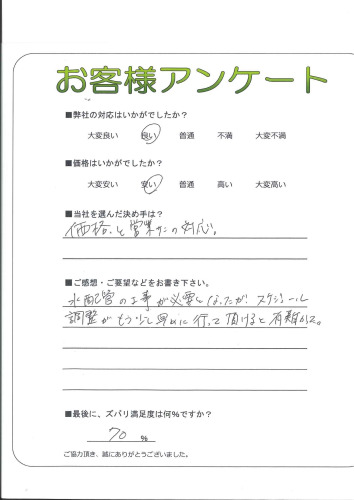 お客様アンケート
■弊社の対応はいかがでしたか？
大変良い 良い 普通 不満 大変不満
■価格はいかがでしたか？
大変安い 安い 普通 高い 大変高い
■当社を選んだ決め手は？
価格、と営業さんの対応。
■ご感想・ご要望などをお書き下さい。
水配管の工事が必要となったが スケジュール
調整がもう少し早めに行って頂けると有難かった。
■最後に、ズバリ満足度は何％ですか？
70 %
ご協力頂き、誠にありがとうございました。